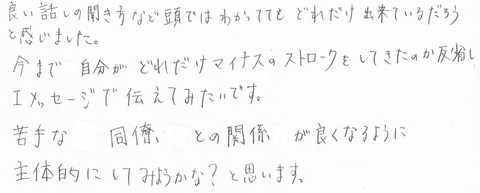 良い話しの聞き方など頭ではわかっててもどれだけ出来ているだろう
と感じました。
今まで 自分が どれだけマイナスのストロークをしてきたのか反省し
Iメッセージで伝えてみたいです。
苦手な 同僚、との関係 が良くなるように
主体的にしてみようかな?と思います。